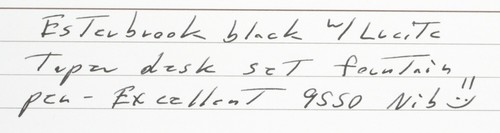 Esterbrook black w/ Lucite
Taper desk set fountain
pen - Excellent 9550 Nib!! :)